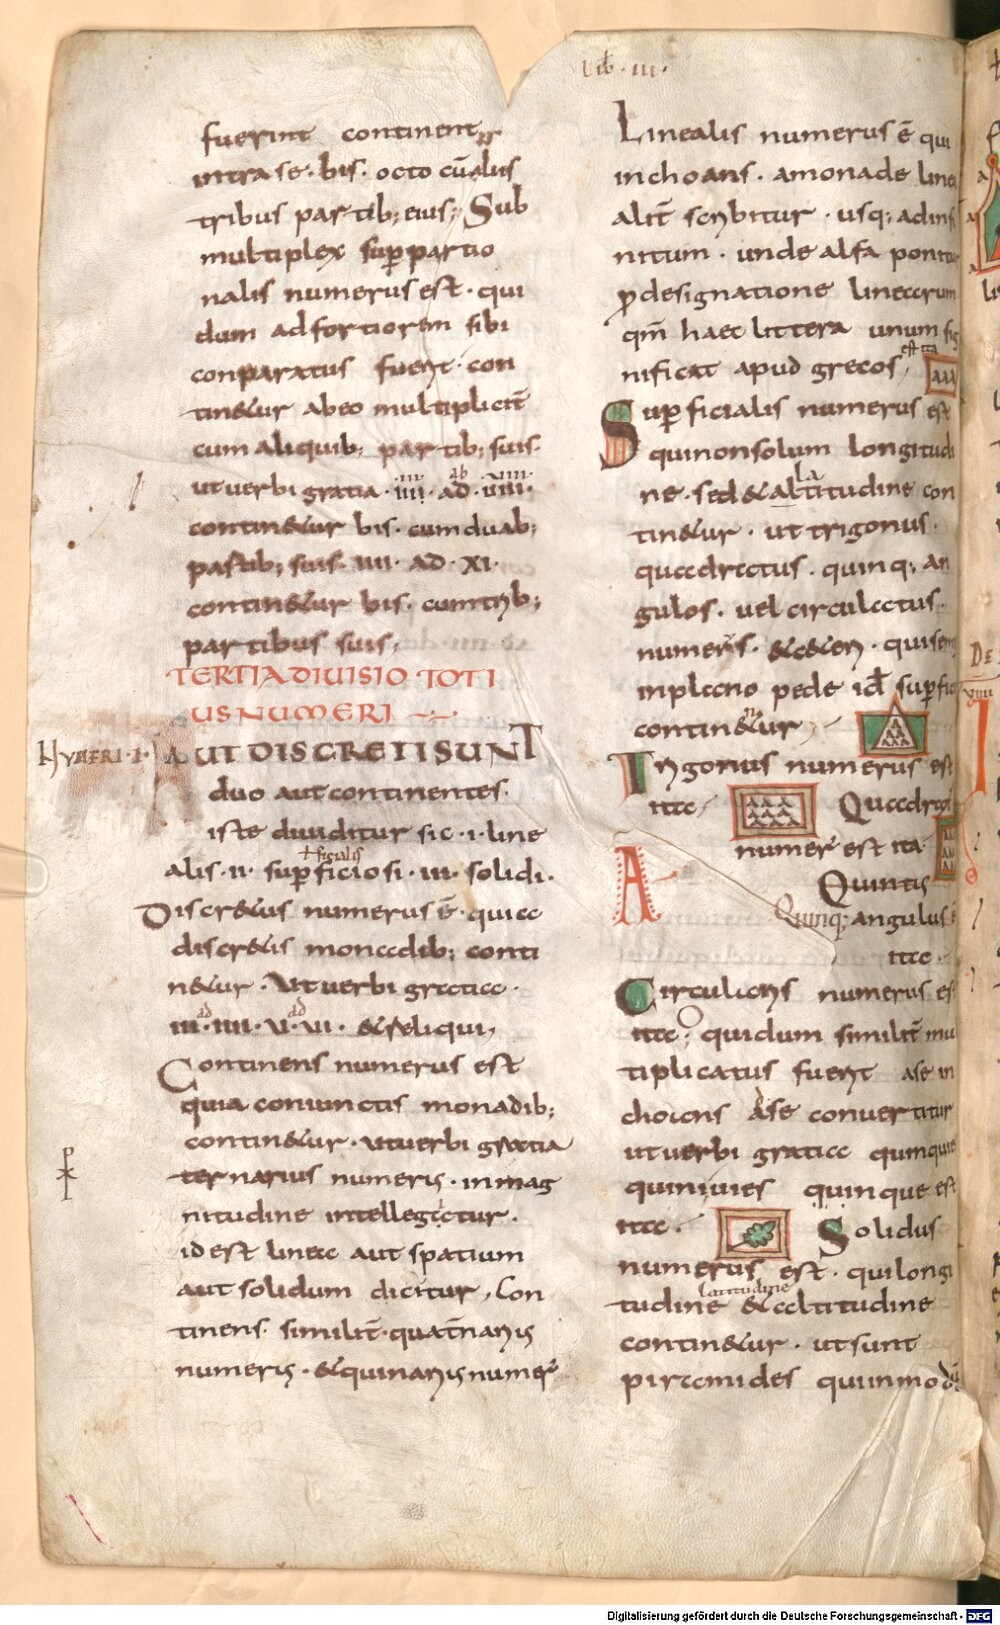 Lib · III ·
fuerint continent
intra se · bis · octo cū aliis
tribus partib; eius; Sub
multiplex sup partio
nalis numerus est · qui
dum ad fortiorem sibi
conparatus fuerit · con
tin&ur ab eo multiplicit̄
cum aliquib; partib; suis ·
ut verbi gratia · IIII · ad · VIIII ·
contin&ur bis · cum duab;
partib; suis · IIII · AD · XI ·
contin&ur bis · cum trib;
partibus suis,
TERTIA DIUISIO TOTI
US NUMERI
AUT DISCRETI SUNT
duo aut continentes ·
iste diuiditur sic · I · line
alis · II · sup ficiosi · III · solidi ·
Discr&us numerus ē · qui a
discr&is monadib; conti
n&ur · Ut verbi gratia ·
III · IIII · V · VI · & reliqui,
Continens numerus est
quia coniunctis monadib;
contin&ur · ut verbi gratia
ternarius numerus · in mag
nitudine intellegatur ·
id est linea aut spatium
aut solidum dicitur, Con
tinens · similit̄ · quat̄naris
numeris · & quinaris numer
Linealis numerus ē qui
inchoans · a monade line
alit̄ scribitur · usq; ad infi
nitum · unde alfa ponitur
p designatione linearum
qm̄ haec littera unum sig
nificat apud grecos, est ita
Sup ficialis numerus est
qui non solum longitudi
ne · sed & altitudine con
tin&ur · ut trigonus ·
quadratus · quinq; an
gulos · uel circulatus ·
numerus · & c&eri · qui sem
in plano pede id̄ supfici
contin&ur,
Trigonus numerus est
ita · Quadra
numer est ita
Quintis
Quinq; angulus ē
ita ·
Circularis numerus est
ita; qui dum similit̄ mu
tiplicatus fuerit a se in
choans ad se conuertitur
ut verbi gratia quinquie
quinuies quinque est
ita · Solidus
numerus est · qui longi
tudine & altitudine
latitudine
contin&ur · ut sunt
piramides qui in modū